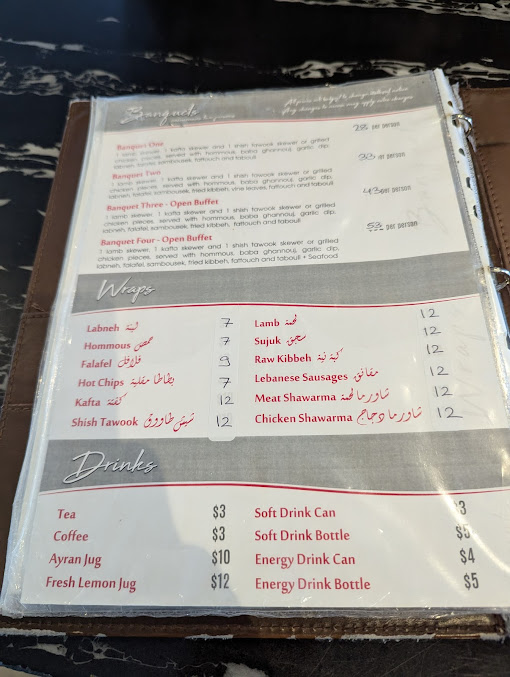 Banquets
28 per person
Banquet One
1 lamb skewer, 1 kafta skewer and 1 shish tawook skewer or grilled
chicken pieces, served with hommous, baba ghannouj, garlic dip,
labneh, falafel, sambousek, fattouch and tabouli
Banquet Two
per person
1 lamb skewer, 1 kafta skewer and 1 shish tawook skewer or grilled
chicken pieces, served with hommous, baba ghannouj, garlic dip,
labneh, falafel, sambousek, fried kibbeh, vine leaves, fattouch and tabouli
Banquet Three - Open Buffet
43 per person
1 lamb skewer, 1 kafta skewer and 1 shish tawook skewer or grilled
chicken pieces, served with hommous, baba ghannouj, garlic dip,
labneh, falafel, sambousek, fried kibbeh, fattouch and tabouli
Banquet Four - Open Buffet
53 per person
1 lamb skewer, 1 kafta skewer and 1 shish tawook skewer or grilled
chicken pieces, served with hommous, baba ghannouj, garlic dip,
labneh, falafel, sambousek, fried kibbeh, fattouch and tabouli + Seafood
Wraps
Labneh لبنة 7
Hommous حمص 7
Falafel فلافل 9
Hot Chips بطاطا مقلية 7
Kafta كفتة 12
Shish Tawook شيش طاووق 12
Lamb لحمة 12
Sujuk سجق 12
Raw Kibbeh كبة نية 12
Lebanese Sausages مقانق 12
Meat Shawarma شاورما لحمة 12
Chicken Shawarma شاورما دجاج 12
Drinks
Tea $3
Coffee $3
Ayran Jug $10
Fresh Lemon Jug $12
Soft Drink Can $3
Soft Drink Bottle $5
Energy Drink Can $4
Energy Drink Bottle $5